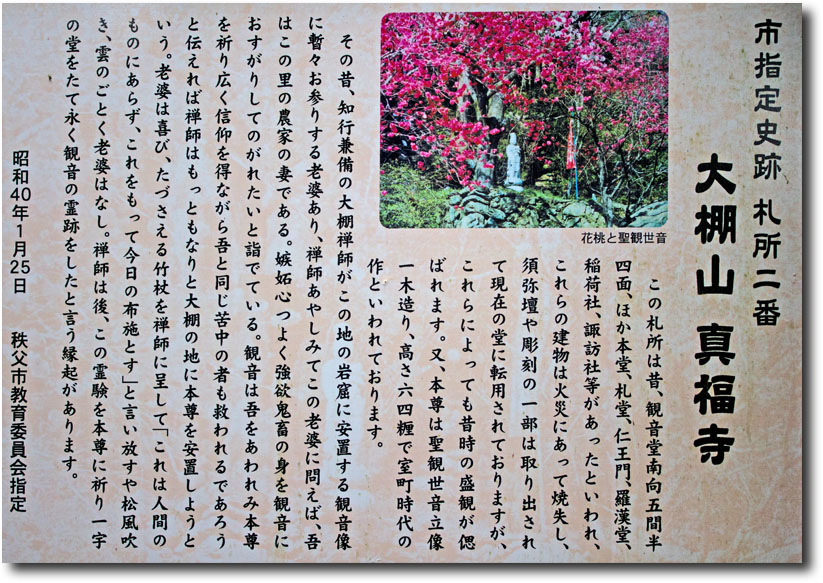 市指定史跡 札所二番
大棚山 真福寺
この札所は昔、観音堂南向五間半
四面、ほか本堂、札堂、仁王門、羅漢堂、
稲荷社、諏訪社等があったといわれ、
これらの建物は火災にあって焼失し、
須弥壇や彫刻の一部は取り出され
て現在の堂に転用されておりますが、
これらによっても昔時の盛観が偲
ばれます。又、本尊は聖観世音立像
一木造り、高さ六四糎で室町時代の
作といわれております。
花桃と聖観世音
その昔、知行兼備の大棚禅師が この地の岩窟に安置する観音像
に暫々お参りする老婆あり、禅師あやしみてこの老婆に問えば、吾
はこの里の農家の妻である。嫉妬心つよく強欲鬼畜の身を観音に
おすがりしてのがれたいと詣でている。観音は吾をあわれみ本尊
を祈り広く信仰を得ながら吾と同じ苦中の者も救われるであろう
と伝えれば禅師はもっともなりと大棚の地に本尊を安置しようと
いう。老婆は喜び、たづさえる竹杖を禅師に呈して「これは人間の
ものにあらず、これをもって今日の布施とす」と言い放すや松風吹
き、雲のごとく老婆はなし。禅師は後、この霊験を本尊に祈り一宇
の堂をたて永く観音の霊跡をしたと言う縁起があります。
昭和40年1月25日 秩父市教育委員会指定